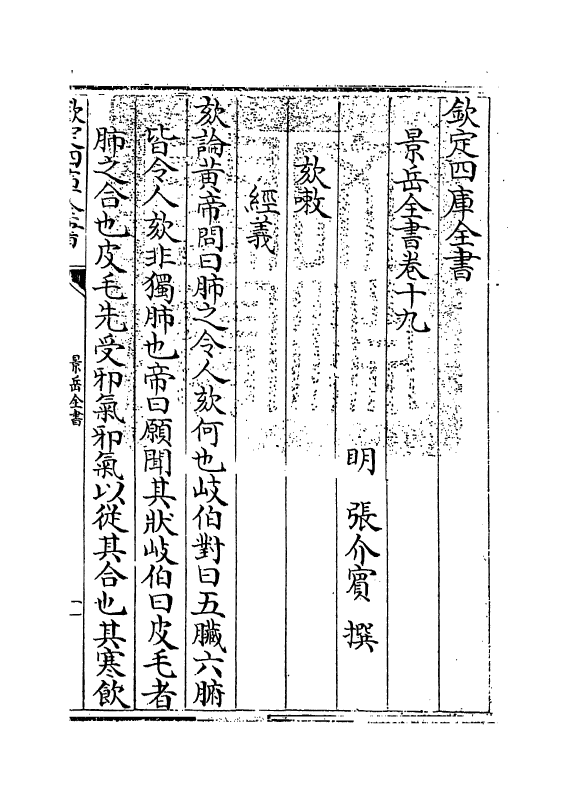 欽定四庫全書
景岳全書卷十九
明　張介賓　撰
欬嗽
經義
欬論黃帝問曰肺之令人欬何也岐伯對曰五臟六腑
皆令人欬非獨肺也帝曰願聞其狀岐伯曰皮毛者
肺之合也皮毛先受邪氣邪氣以從其合也其寒飲
欽定四庫全書
景岳全書
一